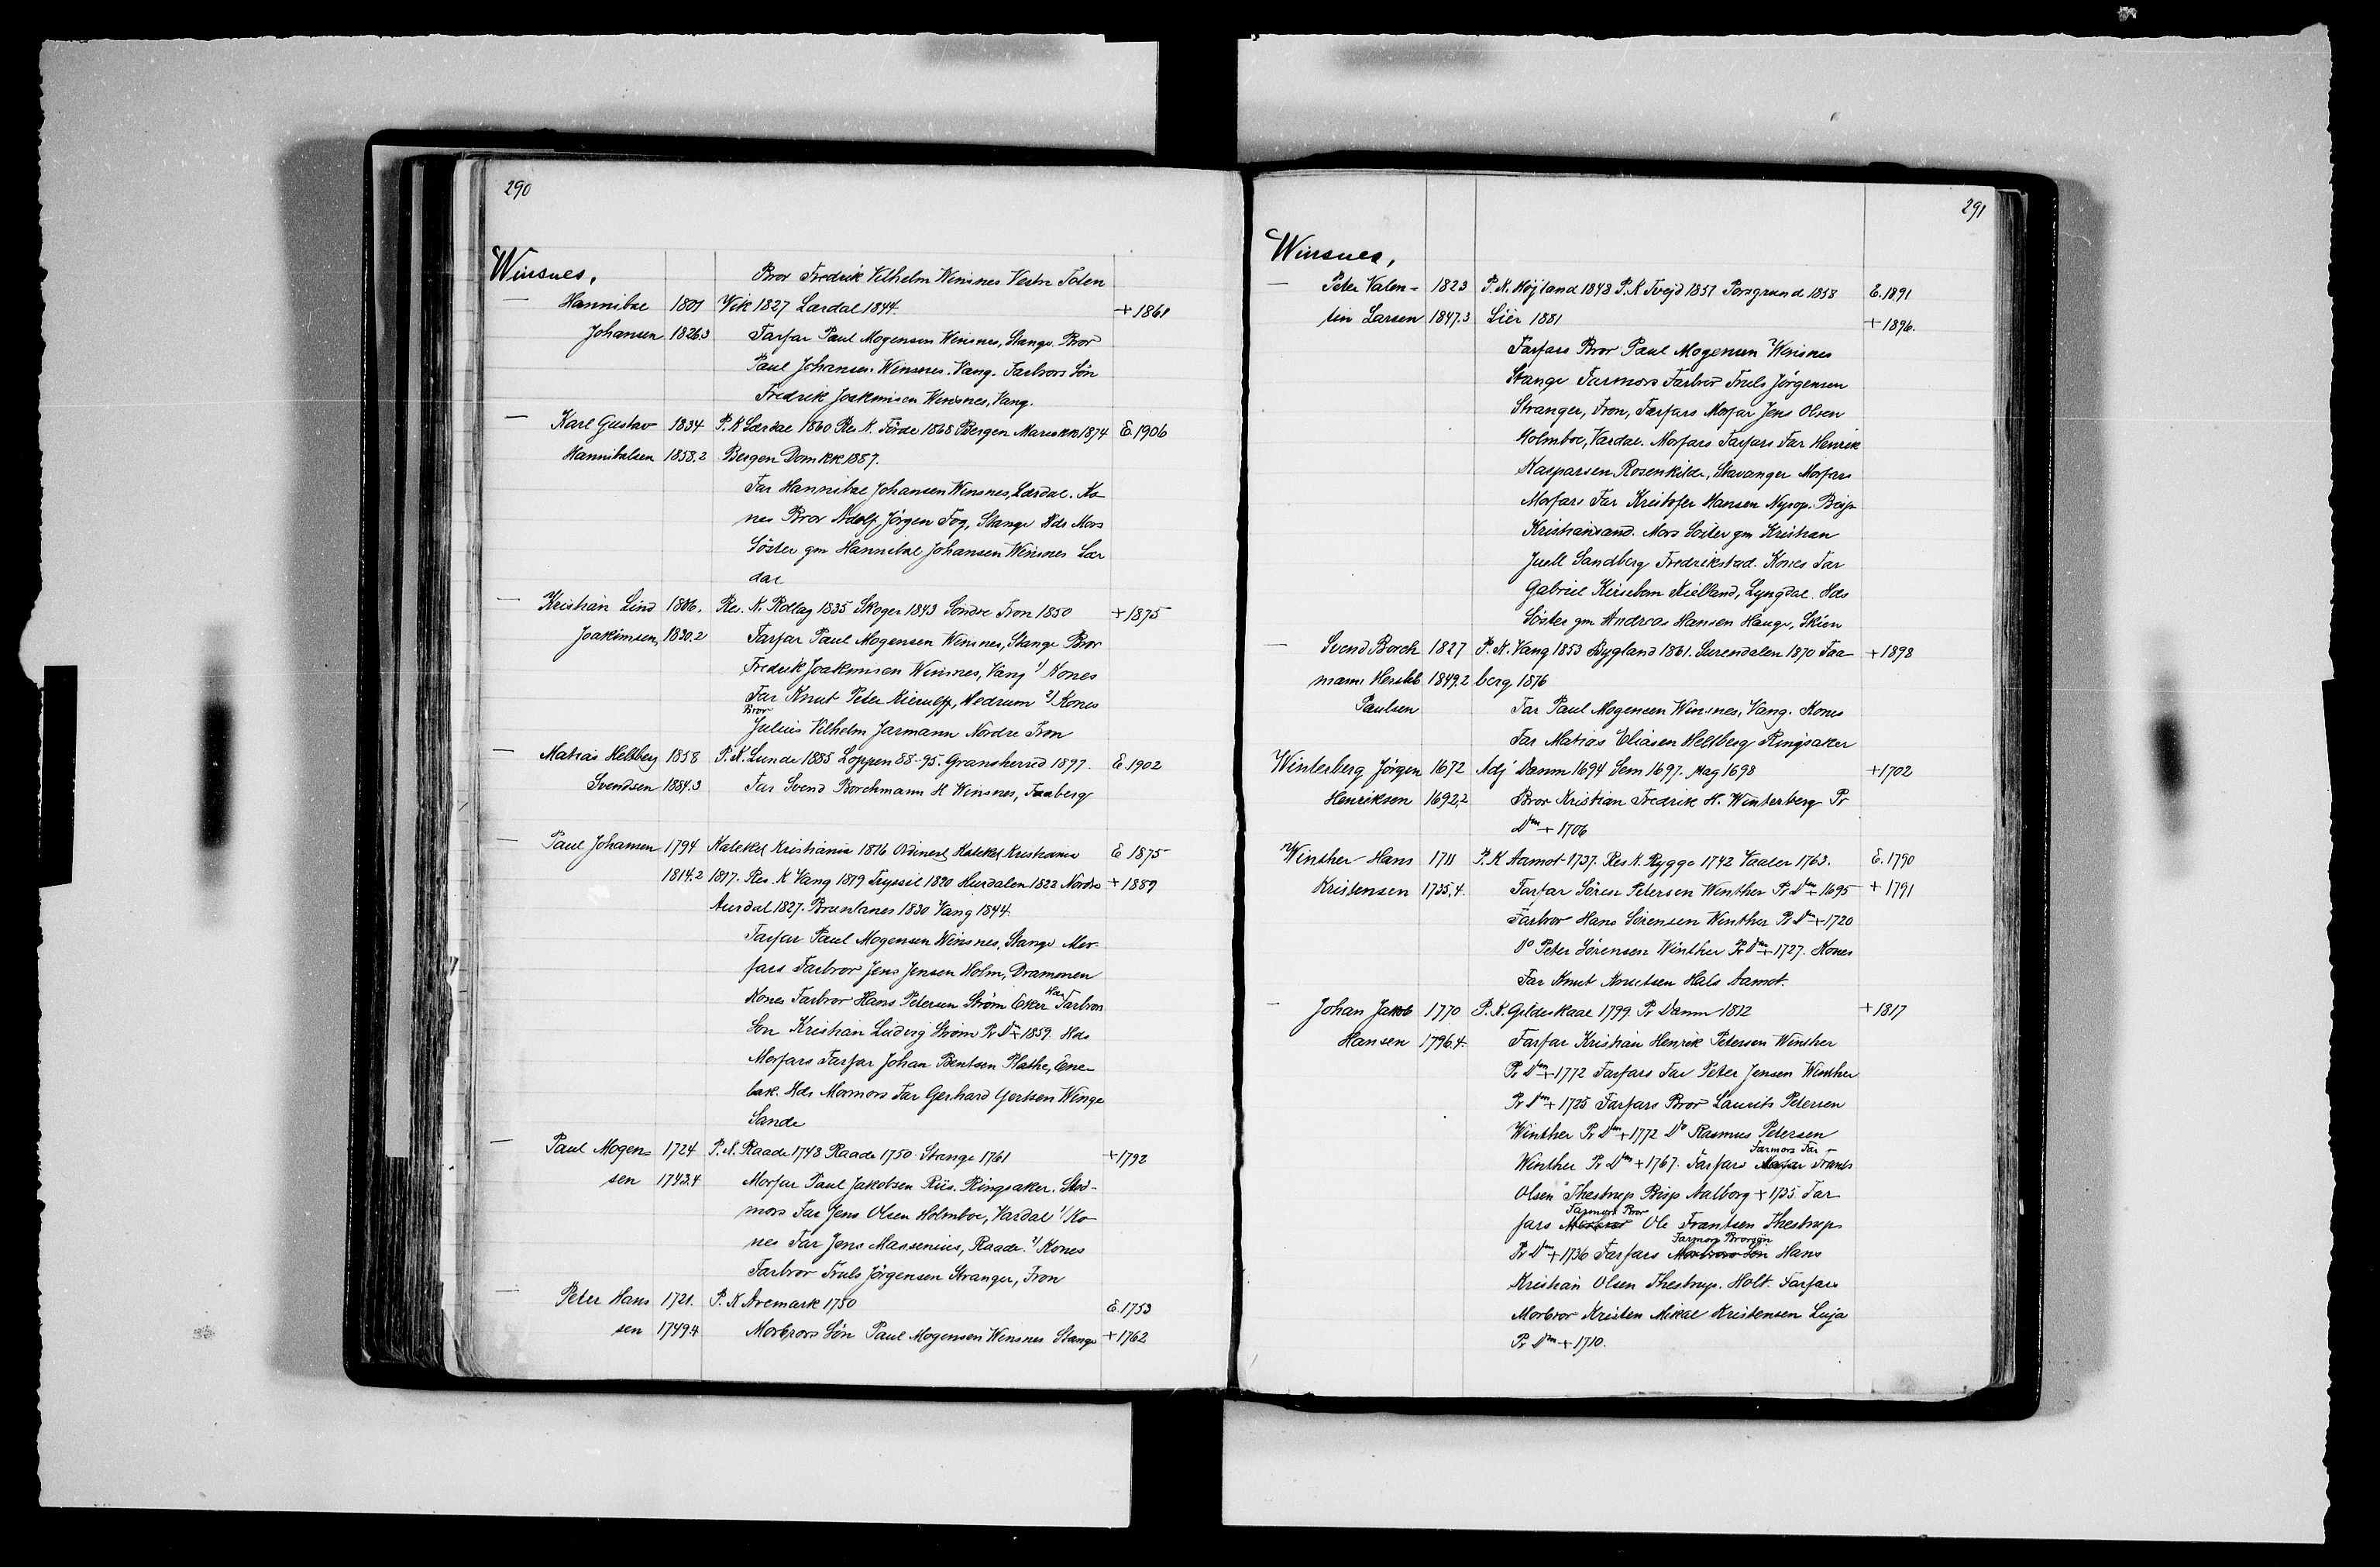 290
Winsnes,
Bror Fredrik Vilhelm Winsnes Vestre Toten
— Hannibal 1801 Vik 1827 Lærdal 1844. + 1861
Johansen 1826.3 Farfar Paul Mogensen Winsnes, Stange. Bror
Paul Johansen Winsnes. Vang. Farbrors Søn
Fredrik Joakimsen Winsnes, Vang.
— Karl Gustav 1834 P.K Lærdal 1860 Res. K. Førde 1868 Bergen Mariekk 1874 E. 1906
Hannibalsen 1858.2 Bergen Domkk 1887.
Far Hannibal Johansen Winsnes, Lærdal. Ko-
nes Bror Adolf Jörgen Fog, Stange Hds Mors
Söster gm Hannibal Johansen Winsnes Lær
dal
— Kristian Lind 1806. Res. K. Rollag 1835 Skoger 1843 Söndre Fron 1850 + 1875
Joakimsen, 1830.2 Farfar Paul Mogensen Winsnes, Stange Bror
Fredrik Joakimsen Winsnes, Vang 1/ Kones
Far Knut Peter Kierulff, Hedrum 2/ Kones
Bror
Julius Vilhelm Jarmann Nordre Fron
— Matias Heltberg 1858 P.K. Lunde 1885 Loppen 88-95. Gransherred 1897. E. 1902
Svendsen 1884.3 Far Svend Borchmann H Winsnes, Faaberg
— Paul Johansen 1794 Kateket Kristiania 1816 Ordinert Kateket Kristiania E 1875
1814.2 1817. Res. K Vang 1819 Tryssil 1820 Hurdalen 1822 Nordre + 1889
Aurdal 1827. Brunlanes 1830 Vang 1844.
Farfar Paul Mogensen Winsnes, Stange Mor-
fars Farbror Jens Jensen Holm, Drammen
Kones Farbror Hans Petersen Strøm Eker Hds Farbrors
Søn Kristian Ludvig Strøm Pr Dm + 1859. Hds
Morfars Farfar Johan Bentsen Plathe, Ene-
bak. Hds Mormors Far Gerhard Gertsen Winge
Sande
— Paul Mogen- 1724 P.K. Raade 1748 Raade 1750 Stange 1761 + 1792
sen 1743.4 Morfar Paul Jakobsen Riis. Ringsaker. Sted-
mors Far Jens Olsen Holmboe, Vardal 1/ Ko-
nes Far Jens Massenius, Raade. 2/ Kones
Farbror Truls Jörgensen Stranger, Fron
— Peter Hans 1721. P. K Aremark 1750 E. 1753
sen 1749.4 Morbrors Søn Paul Mogensen Winsnes Stange + 1762
291
Winsnes,
— Peter Valen- 1823 P.K. Höjland 1848 P.K Tvejd 1851 Porsgrund 1858 E. 1891
tin Larsen 1847.3 Lier 1881 + 1896.
Farfars Bror Paul Mogensen Winsnes
Stange Farmors Farbror Truls Jörgensen
Stranger, Fron, Farfars Morfar Jens Olsen
Holmboe, Vardal. Morfars Farfars Far Henrik
Kaspersen Rosenkilde, Stavanger Morfars
Morfars Far Kristofer Hansen Nyrop. Bisp
Kristiansand. Mors Söster gm Kristian
Juell Sandberg Fredrikstad. Kones Far
Gabriel Kirsebom Kielland, Lyngdal. Hds
Söster gm Andreas Hansen Hauge, Skien
— Svend Borch 1827 P.K. Vang 1853 Bygland 1861. Surendalen 1870 Faa- + 1898
mann Hersleb 1849.2 berg 1876
Paulsen Far Paul Mogensen Winsnes, Vang. Kones
Far Matias Eliasen Heltberg Ringsaker
Winterberg Jörgen 1672 Adj Danm 1694 Sem 1697. Mag 1698 + 1702
Henriksen 1692.2 Bror Kristian Fredrik H. Winterberg Pr
Dm + 1706
Winther Hans 1711 P.K Aamot 1737. Res K. Rygge 1742 Vaaler 1763. E. 1790
Kristensen 1735.4. Farfar Sören Petersen Winther Pr Dm + 1695 + 1791
Farbror Hans Sörensen Winther Pr Dm + 1720
Do Peter Sörensen Winther Pr Dm + 1727. Kones
Far Knut Knutsen Hals Aamot.
— Johan Jakob 1770 P.K. Gildeskaal 1799 Pr Danm 1812 + 1817
Hansen 1796.4. Farfar Kristian Henrik Petersen Winther
Pr Dm + 1772 Farfars Far Peter Jensen Winther
Pr Dm + 1725 Farfars Bror Laurits Petersen
Winther Pr Dm + 1772 Do Rasmus Petersen
Farmors Far
Winther Pr Dm + 1767. Farfars Morfar Frants
Olsen Thestrup Bisp Aalborg + 1735 Far
Farmors Bror
fars Morbror Ole Frantsen Thestrup
Farmors Brorsøn
Pr Dm + 1736 Farfars Morbrors Søn Hans
Kristian Olsen Thestrup. Holt. Farfars
Morbror Kristen Mikal Kristensen Luja
Pr Dm + 1710.